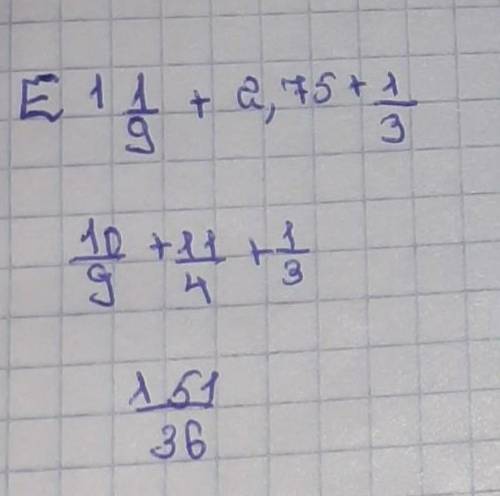 E 1 1/9 + 2,75 + 1/3
10/9 + 11/4 + 1/3
151/36